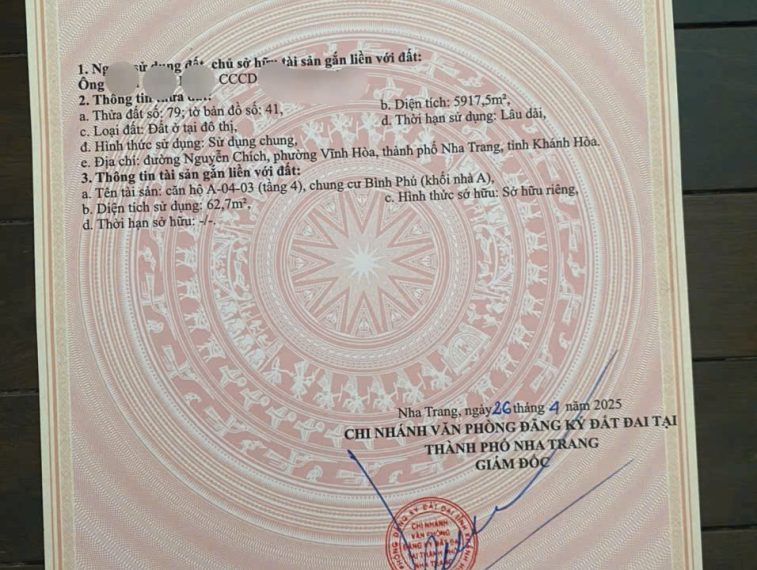 1. sử dụng đất, chủ sở hữu tài sản gắn liền với đất:
Ông CCCD
2. Thông tin thửa đất:
a. Thửa đất số: 79; tờ bản đồ số: 41, b. Diện tích: 5917,5m²,
c. Loại đất: Đất ở tại đô thị, d. Thời hạn sử dụng: Lâu dài,
đ. Hình thức sử dụng: Sử dụng chung,
e. Địa chỉ: đường Nguyễn Chích, phường Vĩnh Hòa, thành phố Nha Trang, tỉnh Khánh Hòa.
3. Thông tin tài sản gắn liền với đất:
a. Tên tài sản: căn hộ A-04-03 (tầng 4), chung cư Bình Phú (khối nhà A),
b. Diện tích sử dụng: 62,7m², c. Hình thức sở hữu: Sở hữu riêng,
d. Thời hạn sở hữu: -/-.
Nha Trang, ngày 26 tháng 4 năm 2025
CHI NHÁNH VĂN PHÒNG ĐĂNG KÝ ĐẤT ĐAI TẠI
THÀNH PHỐ NHA TRANG
GIÁM ĐỐC
CHI NHÁNH
VĂN PHÒNG
ĐĂNG KÝ ĐẤT ĐAI
TẠI THÀNH PHỐ
NHA TRANG